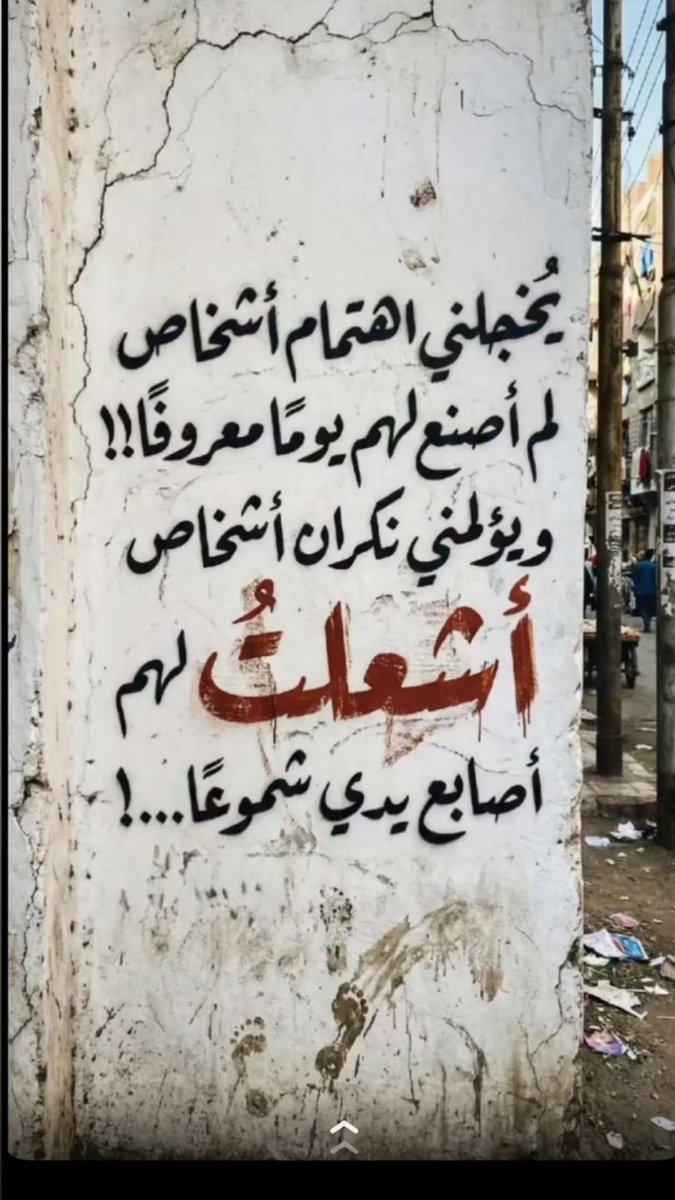 يُخجلني اهتمام أشخاص
لم أصنع لهم يومًا معروفًا!!
ويؤلمني نكران أشخاص
أشعلتُ لهم
أصابع يدي شموعًا....!